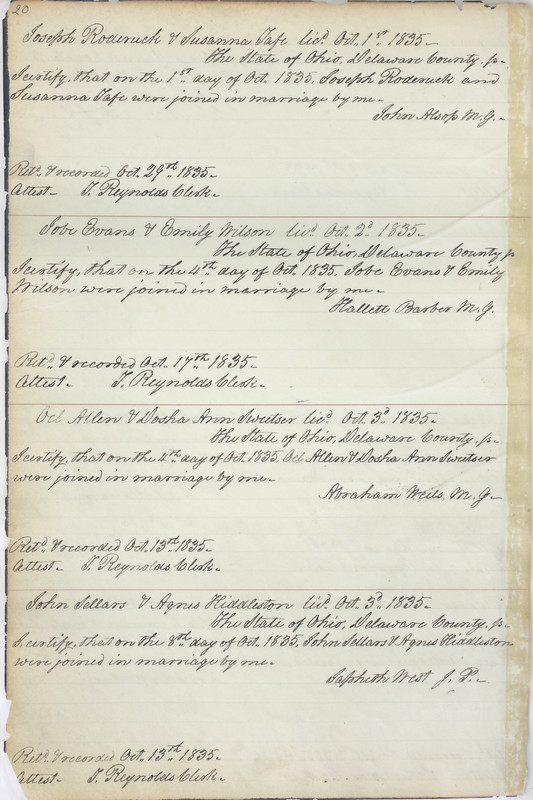 20
Joseph Roderuck & Susanna Tafe licd. Oct. 1st 1835.
The State of Ohio, Delaware County, p.
I certify, that on the 1st day of Oct. 1835, Joseph Roderuck and
Susanna Tafe were joined in marriage by me.
John Alsop M.G.
Retd. & recorded Oct. 29th 1835.
Attest. T. Reynolds Clerk.
Jobe Evans & Emily Wilson licd. Oct. 2d 1835.
The State of Ohio, Delaware County p
I certify, that on the 4th day of Oct. 1835, Jobe Evans & Emily
Wilson were joined in marriage by me.
Hallett Barber M.G.
Retd. & recorded Oct. 17th 1835.
Attest. T. Reynolds Clerk.
Oel Allen & Dosha Ann Sweetser licd. Oct. 3d 1835.
The State of Ohio, Delaware County, p.
I certify, that on the 4th day of Oct. 1835, Oel Allen & Dosha Ann Sweetser
were joined in marriage by me.
Abraham Weils. M.G.
Retd. & recorded Oct. 13th 1835.
Attest. T. Reynolds Clerk.
John Sellars & Agnes Hiddleston licd. Oct. 3d 1835.
The State of Ohio, Delaware County, p.
I, certify, that on the 8th day of Oct. 1835, John Sellars & Agnes Hiddleston
were joined in marriage by me.
Japheth West J. P.
Retd. & recorded Oct. 13th 1835.
Attest. T. Reynolds Clerk.